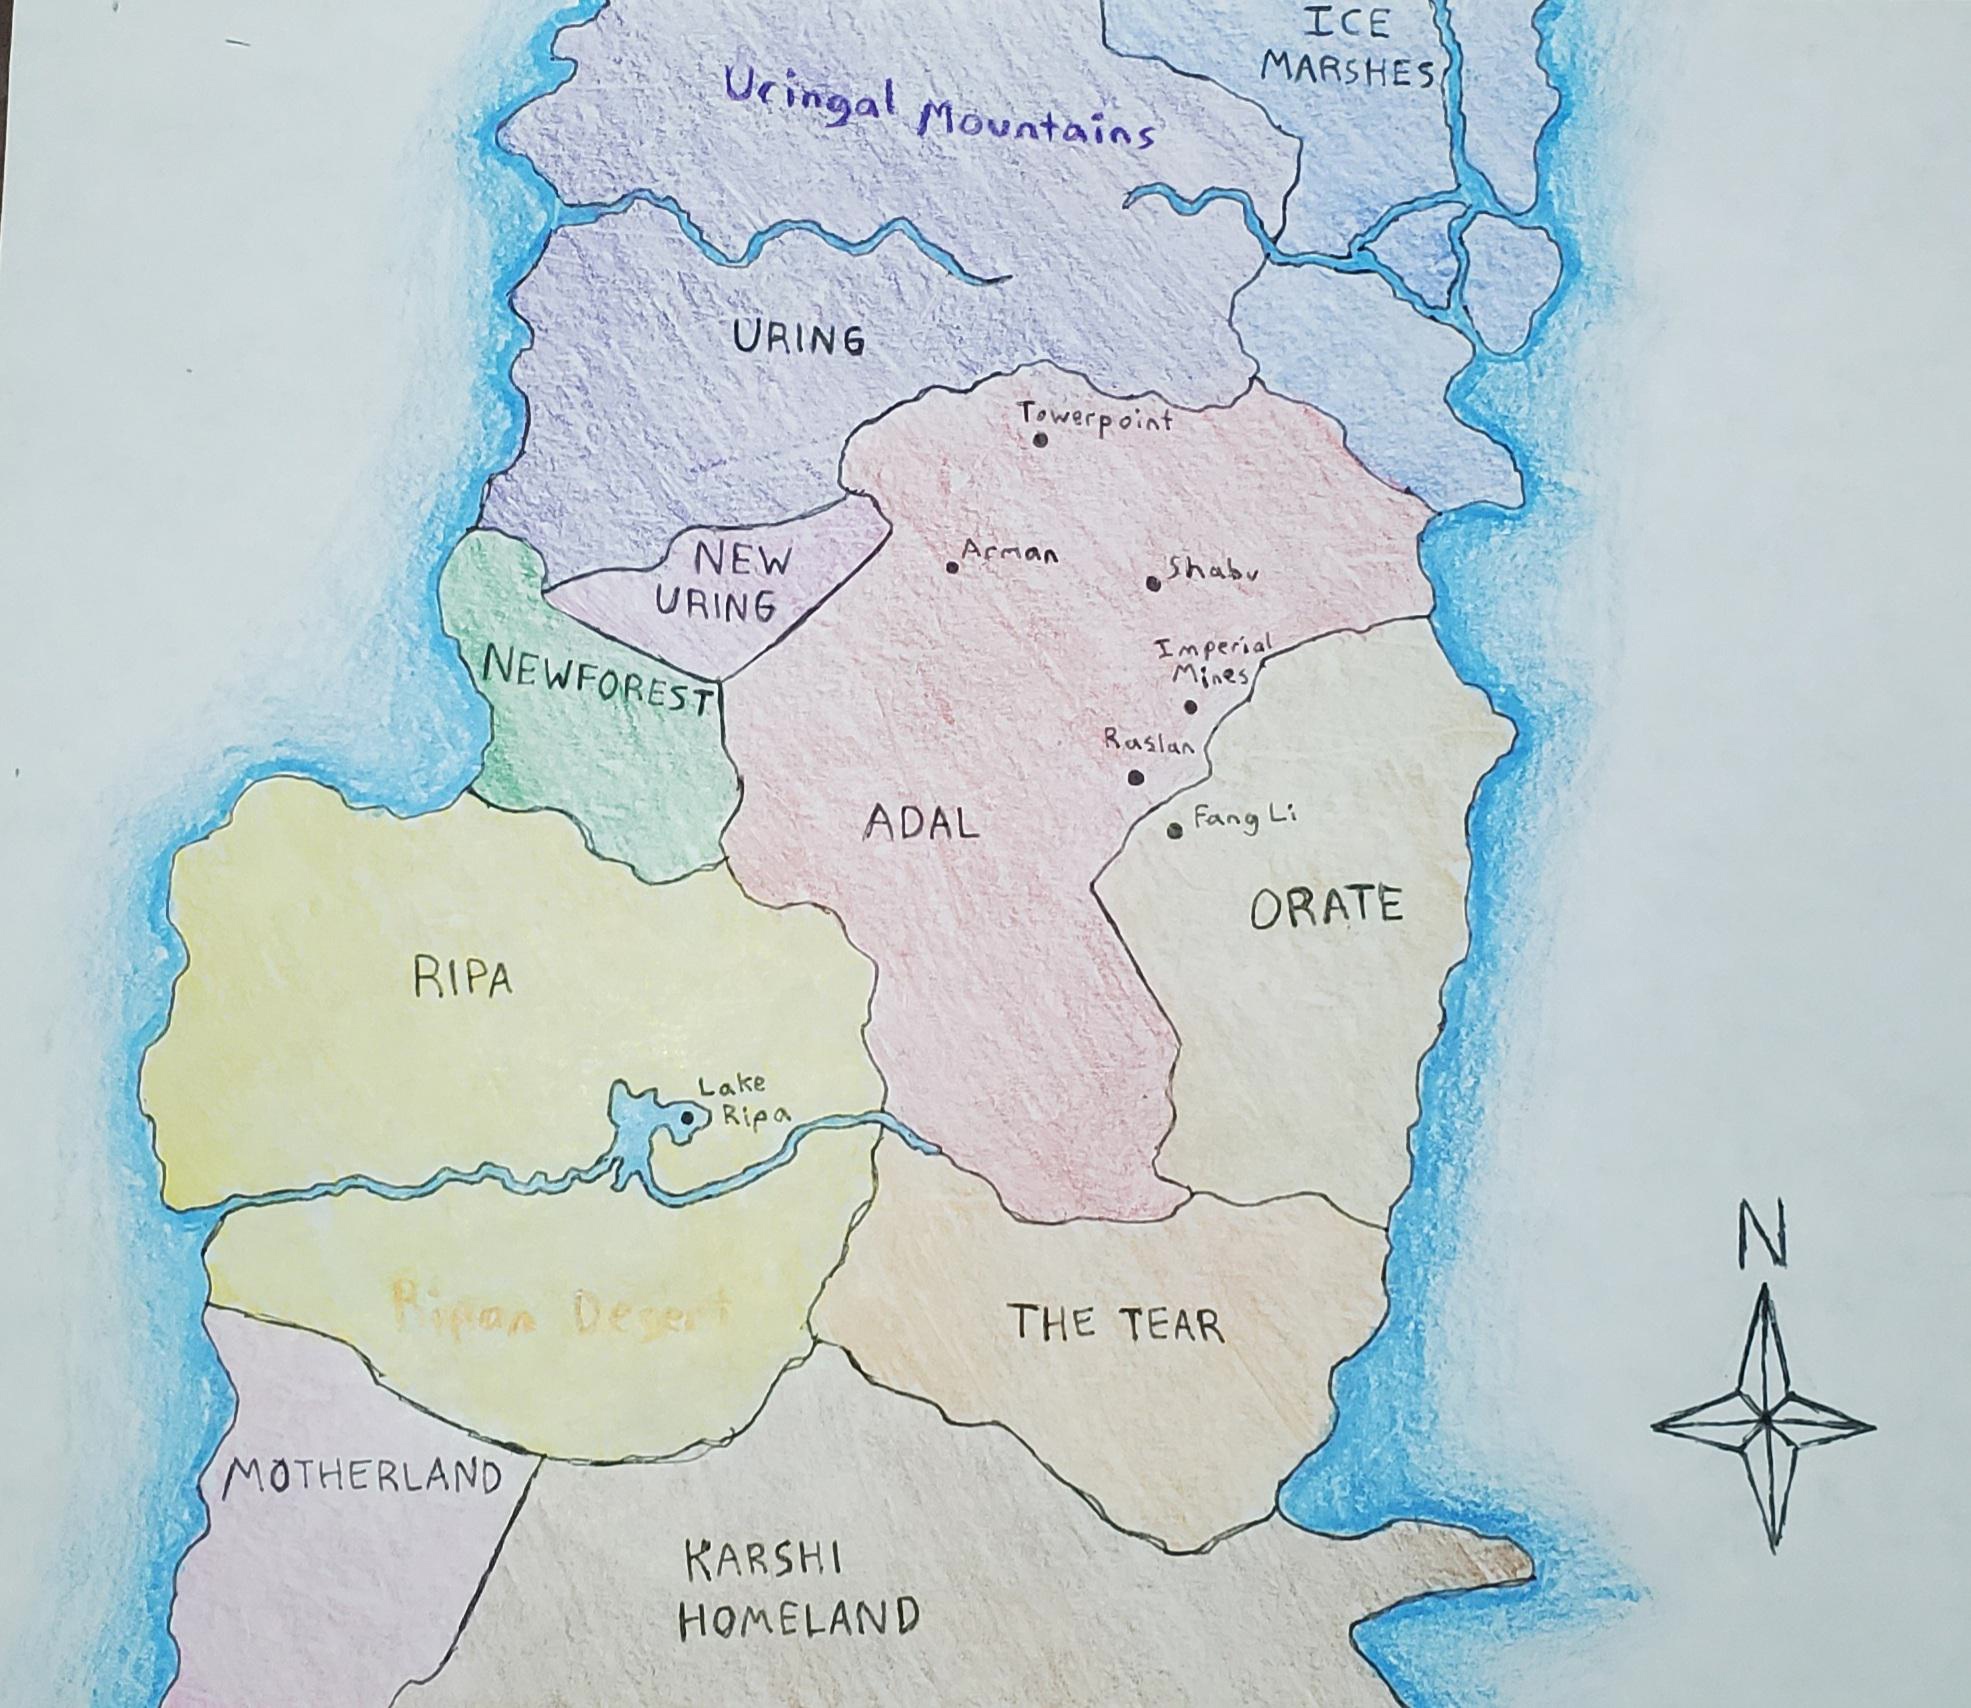 ICE
MARSHES
Uringal Mountains
URING
Towerpoint
Arman
Shabu
NEW
URING
Imperial
Mines
NEWFOREST
Raslan
Fang Li
ADAL
ORATE
RIPA
Lake
Ripa
N
Ripan Desert
THE TEAR
MOTHERLAND
KARSHI
HOMELAND